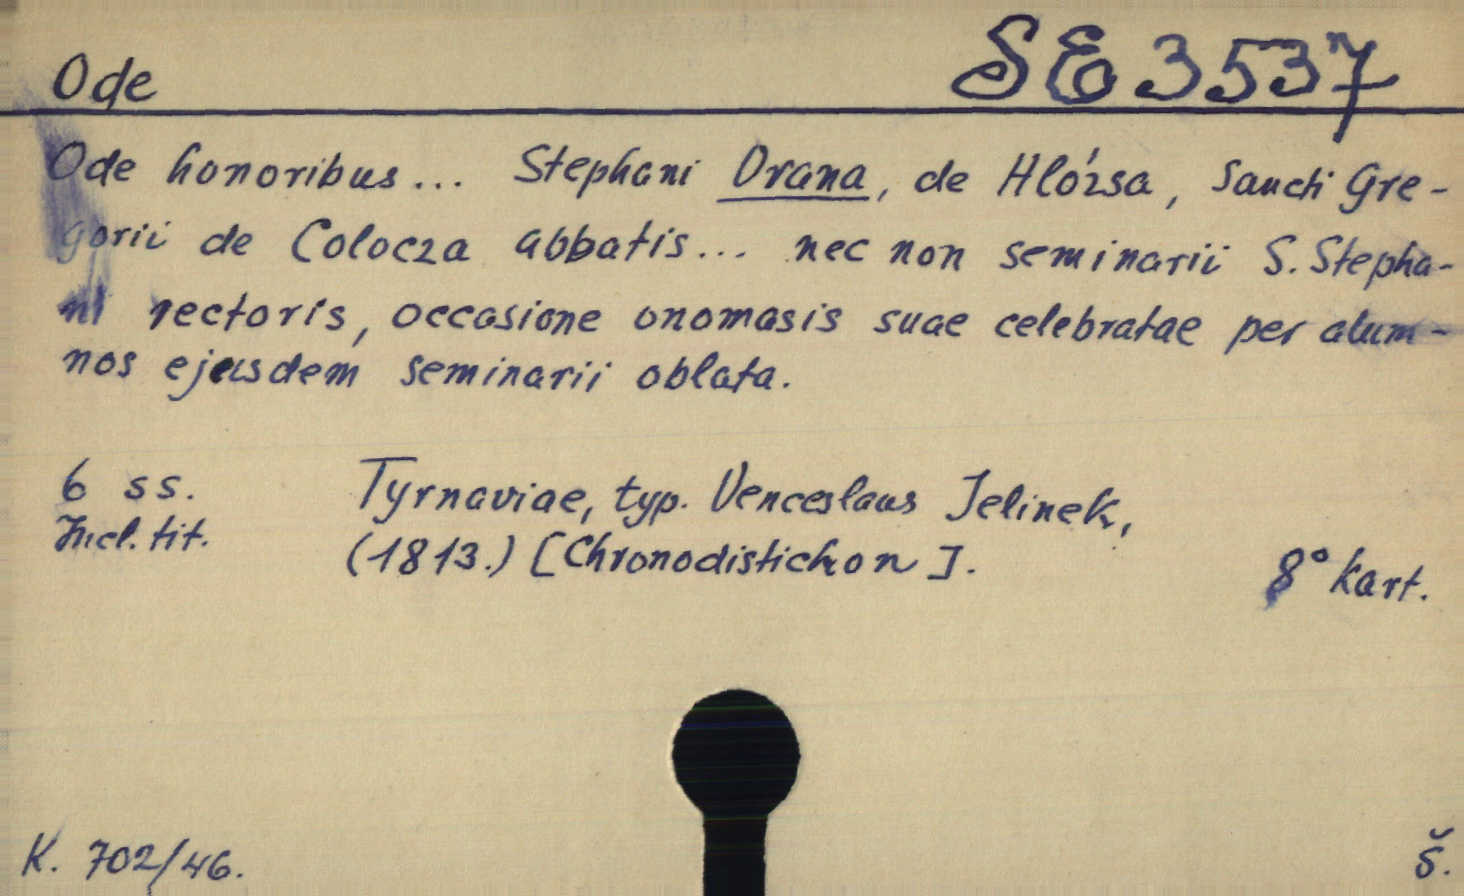 Ode SE 3537
Ode honoribus... Stephani Drana, de Hlózsa, Sancti Gre-
gorii de Colocza abbatis... nec non seminarii S. Stepha-
ni rectoris, occasione onomasis suae celebratae per alum-
nos ejusdem seminarii oblata.
6 ss. Tyrnaviae, typ. Venceslaus Jelinek,
Incl. tit. (1813.) [Chronodistichon].
8° kart.
K. 702/46. Š.